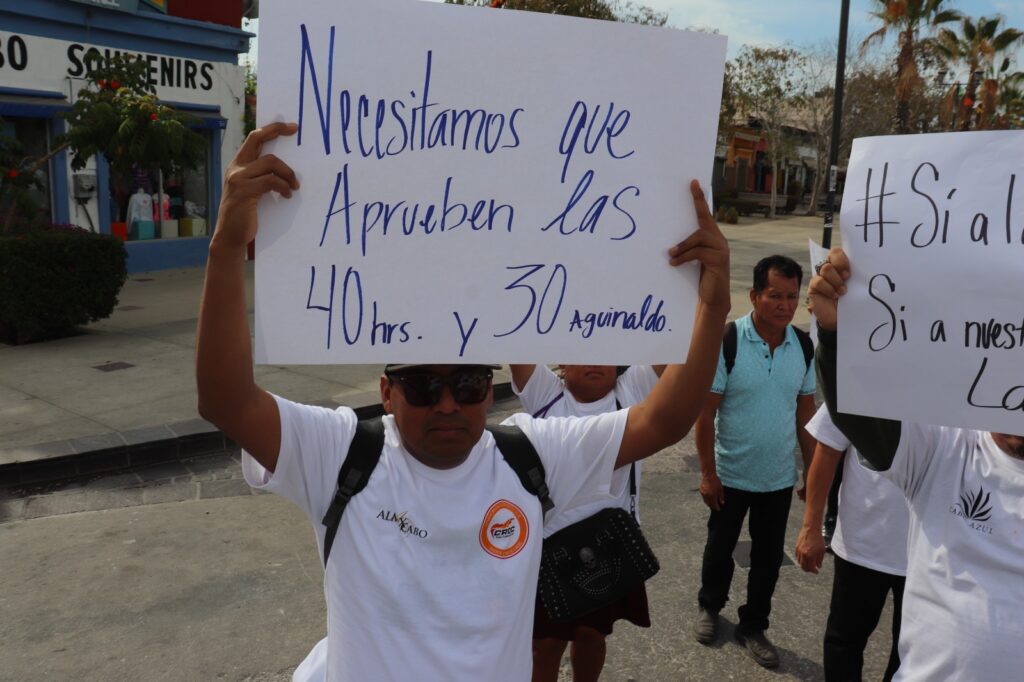 BO SOUVENIRS
Necesitamos que
Aprueben las
40 hrs. y 30 Aguinaldo.
#Si al
Si a nuest
La
CROC
AZUL